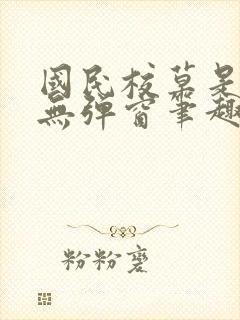 國民校草是
無彈窗筆趣
粉粉